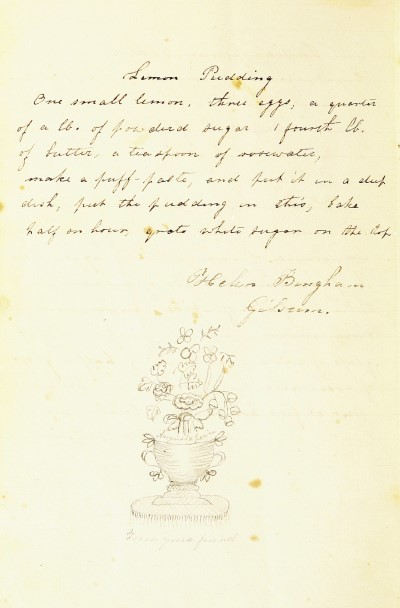 Lemon Pudding
One small lemon, three eggs, a quarter
of a lb. of powderd sugar 1 fourth lb.
of butter, a teaspoon of rosewater,
make a puff-paste, and put it in a deep
dish, put the pudding in this, bake
half an hour, grate white sugar on the top
Helen Bingham
Gilsum.